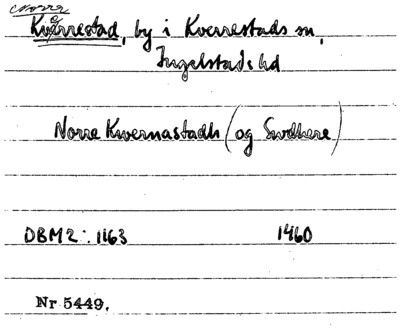 Norra
Kverrestad, by i Kverrestads sn,
Ingelstads hd
Norre Kwernastadh (og Swdhere)
DBM2: 1163 1460
Nr 5449.